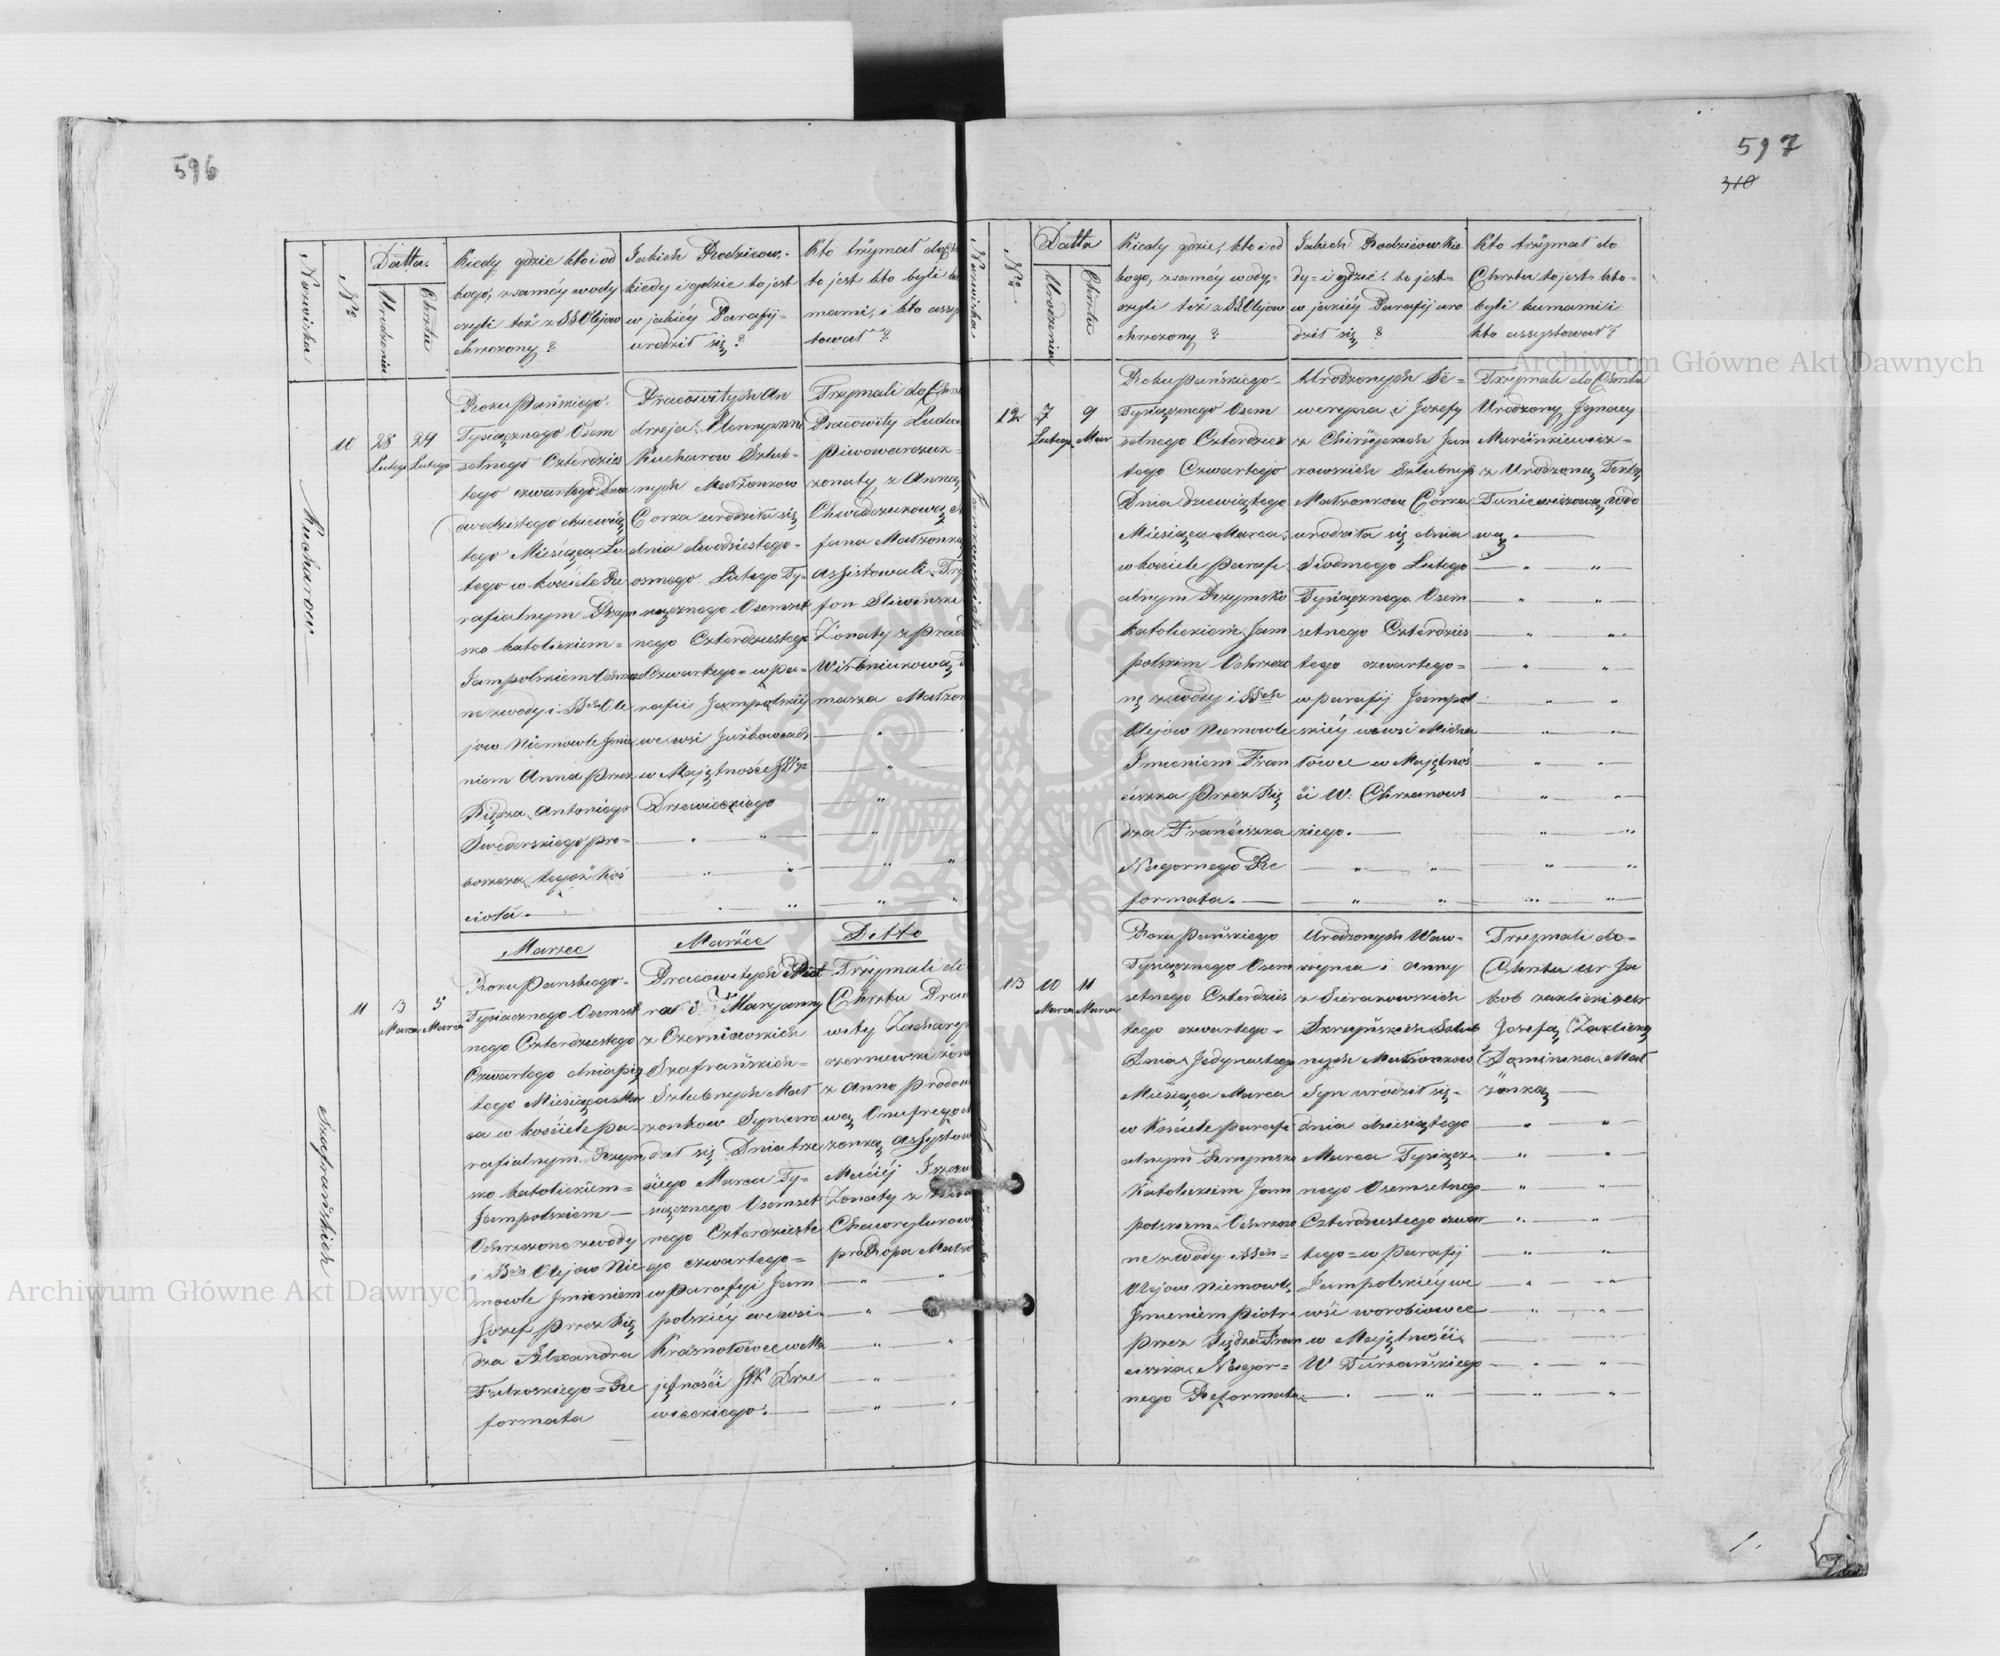 596
Nazwiska
Nro
Datta.
Urodzenia
Chrztu
Kiedy gdzie kto i od
kogo, z samey wody
czyli też z SS Olejow
chrzczony?
Jakich Rodzicow,
kiedy i gdzie to jest
w jakiéy Parafij
urodził się?
Kto trzymał do
to jest kto byli
mami, i kto assy
tował?
Kucharow
10
28 Lutego
29 Lutego
Roku Pańskiego
Tysiącznego Osem
setnego Czterdzies
tego czwartego Dnia
dwudziestego dziewią
tego Miesiąca Lu
tego w kościele Pa
rafialnym Rzym
sko katolickiem
Jampolskiem Ochrzczo
ne z wody i SSch Ole
jow Niemowle Jmie
niem Anna Przez
Księdza Antoniego
Swiderskiego pro
boszcza tegoż Koś
cioła.
Pracowitych An
drzeja i
Kucharow Szlub
nych Małżonkow
Corka urodziła się
dnia dwudziestego
osmego Lutego Ty
siącznego Osemset
nego Czterdziestego
Czwartego w pa
rafii Jampolskiéj
we wsi Juśkowcach
w Majętności JW
Drzewieckiego
Trzymali do
Pracowity Ludw
Piwowarczuk
żonaty z Anną
Chwedczukową
fana Małżonką
Assistowali
fon Sliwinski
Żonaty z
masza Małżon
Marzec
Marzec
Ditto
Szafrańskich
11
3 Marca
5 Marca
Roku Panskiego
Tysiącznego Osemset
nego Czterdziestego
Czwartego dnia pią
tego Miesiąca Mar
ca w kościele pa
rafialnym Rzym
sko katolickiem
Jampolskiem
Ochrzczone z wody
i SSch Olejow Nie
mowle Jmieniem
Jozef przez Się
dza Alexandra
Re
formata
Pracowitych Piot
ra i Maryanny
z Czerniawskich
Szafrańskich
Szlubnych Mał
żonkow Syn uro
dził się Dnia trze
ciego Marca Ty
siącznego Osemset
nego Czterdzieste
go czwartego
w parafyi Jam
polskiéy we wsi
Krasnołowce w Ma
jętności JW Drze
wieckiego.
Trzymali do
Chrztu Praw
wity Zachary
z Anną
wą Onufrego
żonką Assystow
Maciéj
Żonaty z
Prokopa Małżo
597
310
Nazwiska
Nro
Datta
Urodzenia
Chrztu
Kiedy gdzie, kto i od
kogo, z saméy wody,
czyli też z SS Olejow
chrzczony?
Jakich Rodzicow Kie
dy i gdzie? to jest
w jakiéy Parafij uro
dził się?
Kto trzymał do
Chrztu to jest kto
byli kumami i
kto assystował?
12
7 Lutego
9 Mar
Roku Pańskiego
Tysiącznego Osem
setnego Czterdzies
tego Czwartego
Dnia dziewiątego
Miesiąca Marca
w kościele parafi
alnym Rzymsko
Katolickiem Jam
polskim Ochrzczo
ną z wody i SSch
Olejow Niemowle
Jmieniem Fran
ciszka Przez Xię
dza Franciszka
Nagornego Re
formata.
Urodzonych Se
weryna i Jozefy
z Jan
kowskich Szlubnych
Małżonkow Córka
urodziła się dnia
Siodmego Lutego
Tysiącznego Osem
setnego Czterdzies
tego czwartego
w parafij Jampol
skiéy we wsi Micha
łowce w Majętnoś
ci W. Chrzanows
kiego.
Trzymali do Chrztu
Urodzony Jgnacy
Marcinkiewicz
z Urodzoną Teklą
Tuniewiczową wdo
wą.
13
10 Marca
11 Marca
Roku Pańskiego
Tysiącznego Osem
setnego Czterdzies
tego czwartego
Dnia Jedynastego
Miesiąca Marca
w Kościele parafi
alnym Rzymsko
Katolickiem Jam
polskiem Ochrzczo
ne z wody SSch
Olejow Niemowle
Jmieniem Piotr
przez Xiędza Fran
ciszka Nagor
nego Reformata.
Urodzonych Waw
rzynca i Anny
z Sierakowskich
Skrupskich Szlub
nych Małżonkow
Syn urodził się
dnia dziesiątego
Marca Tysiącz
nego Osemsetnego
Czterdziestego czwar
tego w Parafij
Jampolskiéy we
wsi Worobiowce
w Majętności
W Turzańskiego
Trzymali do
Chrztu Ur Ja
kob
Jozefą
Dominika Mał
żonką
Archiwum Główne Akt Dawnych
Archiwum Główne Akt Dawnych